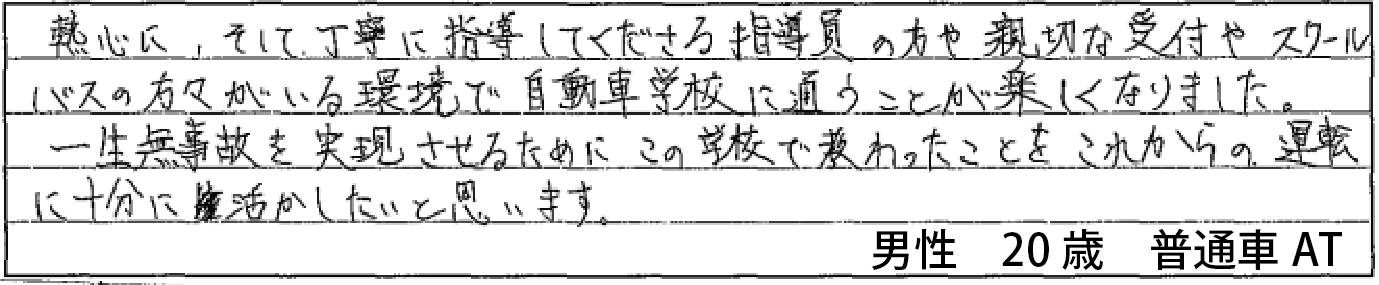 熱心に，そして、丁寧に指導してくださる指導員の方や親切な受付やスクール
バスの方々がいる環境で自動車学校に通うことが楽しくなりました。
一生無事故を実現させるためにこの学校で教わったことをこれからの運転
に十分に活かしたいと思います。
男性　20歳　普通車AT